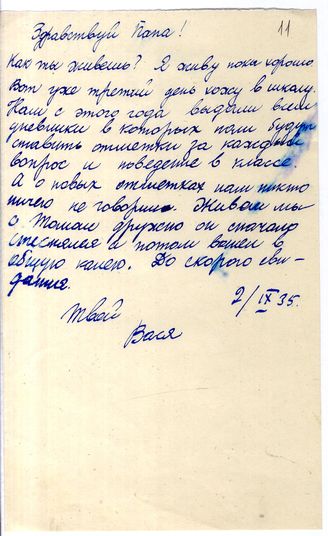 11
Здравствуй Папа!
Как ты живешь? Я живу пока хорошо
Вот уже третий день хожу в школу.
Нам с этого года выдали всем
дневники в которых нам будут
ставить отметки за каждый
вопрос и поведение в классе.
А о новых отметках нам никто
ничего не говорил. Живем мы
с Томом дружно он сначало
стеснялся а потом вошел в
общую колею. До скорого сви-
дания.
2/IX 35.
Твой
Вася